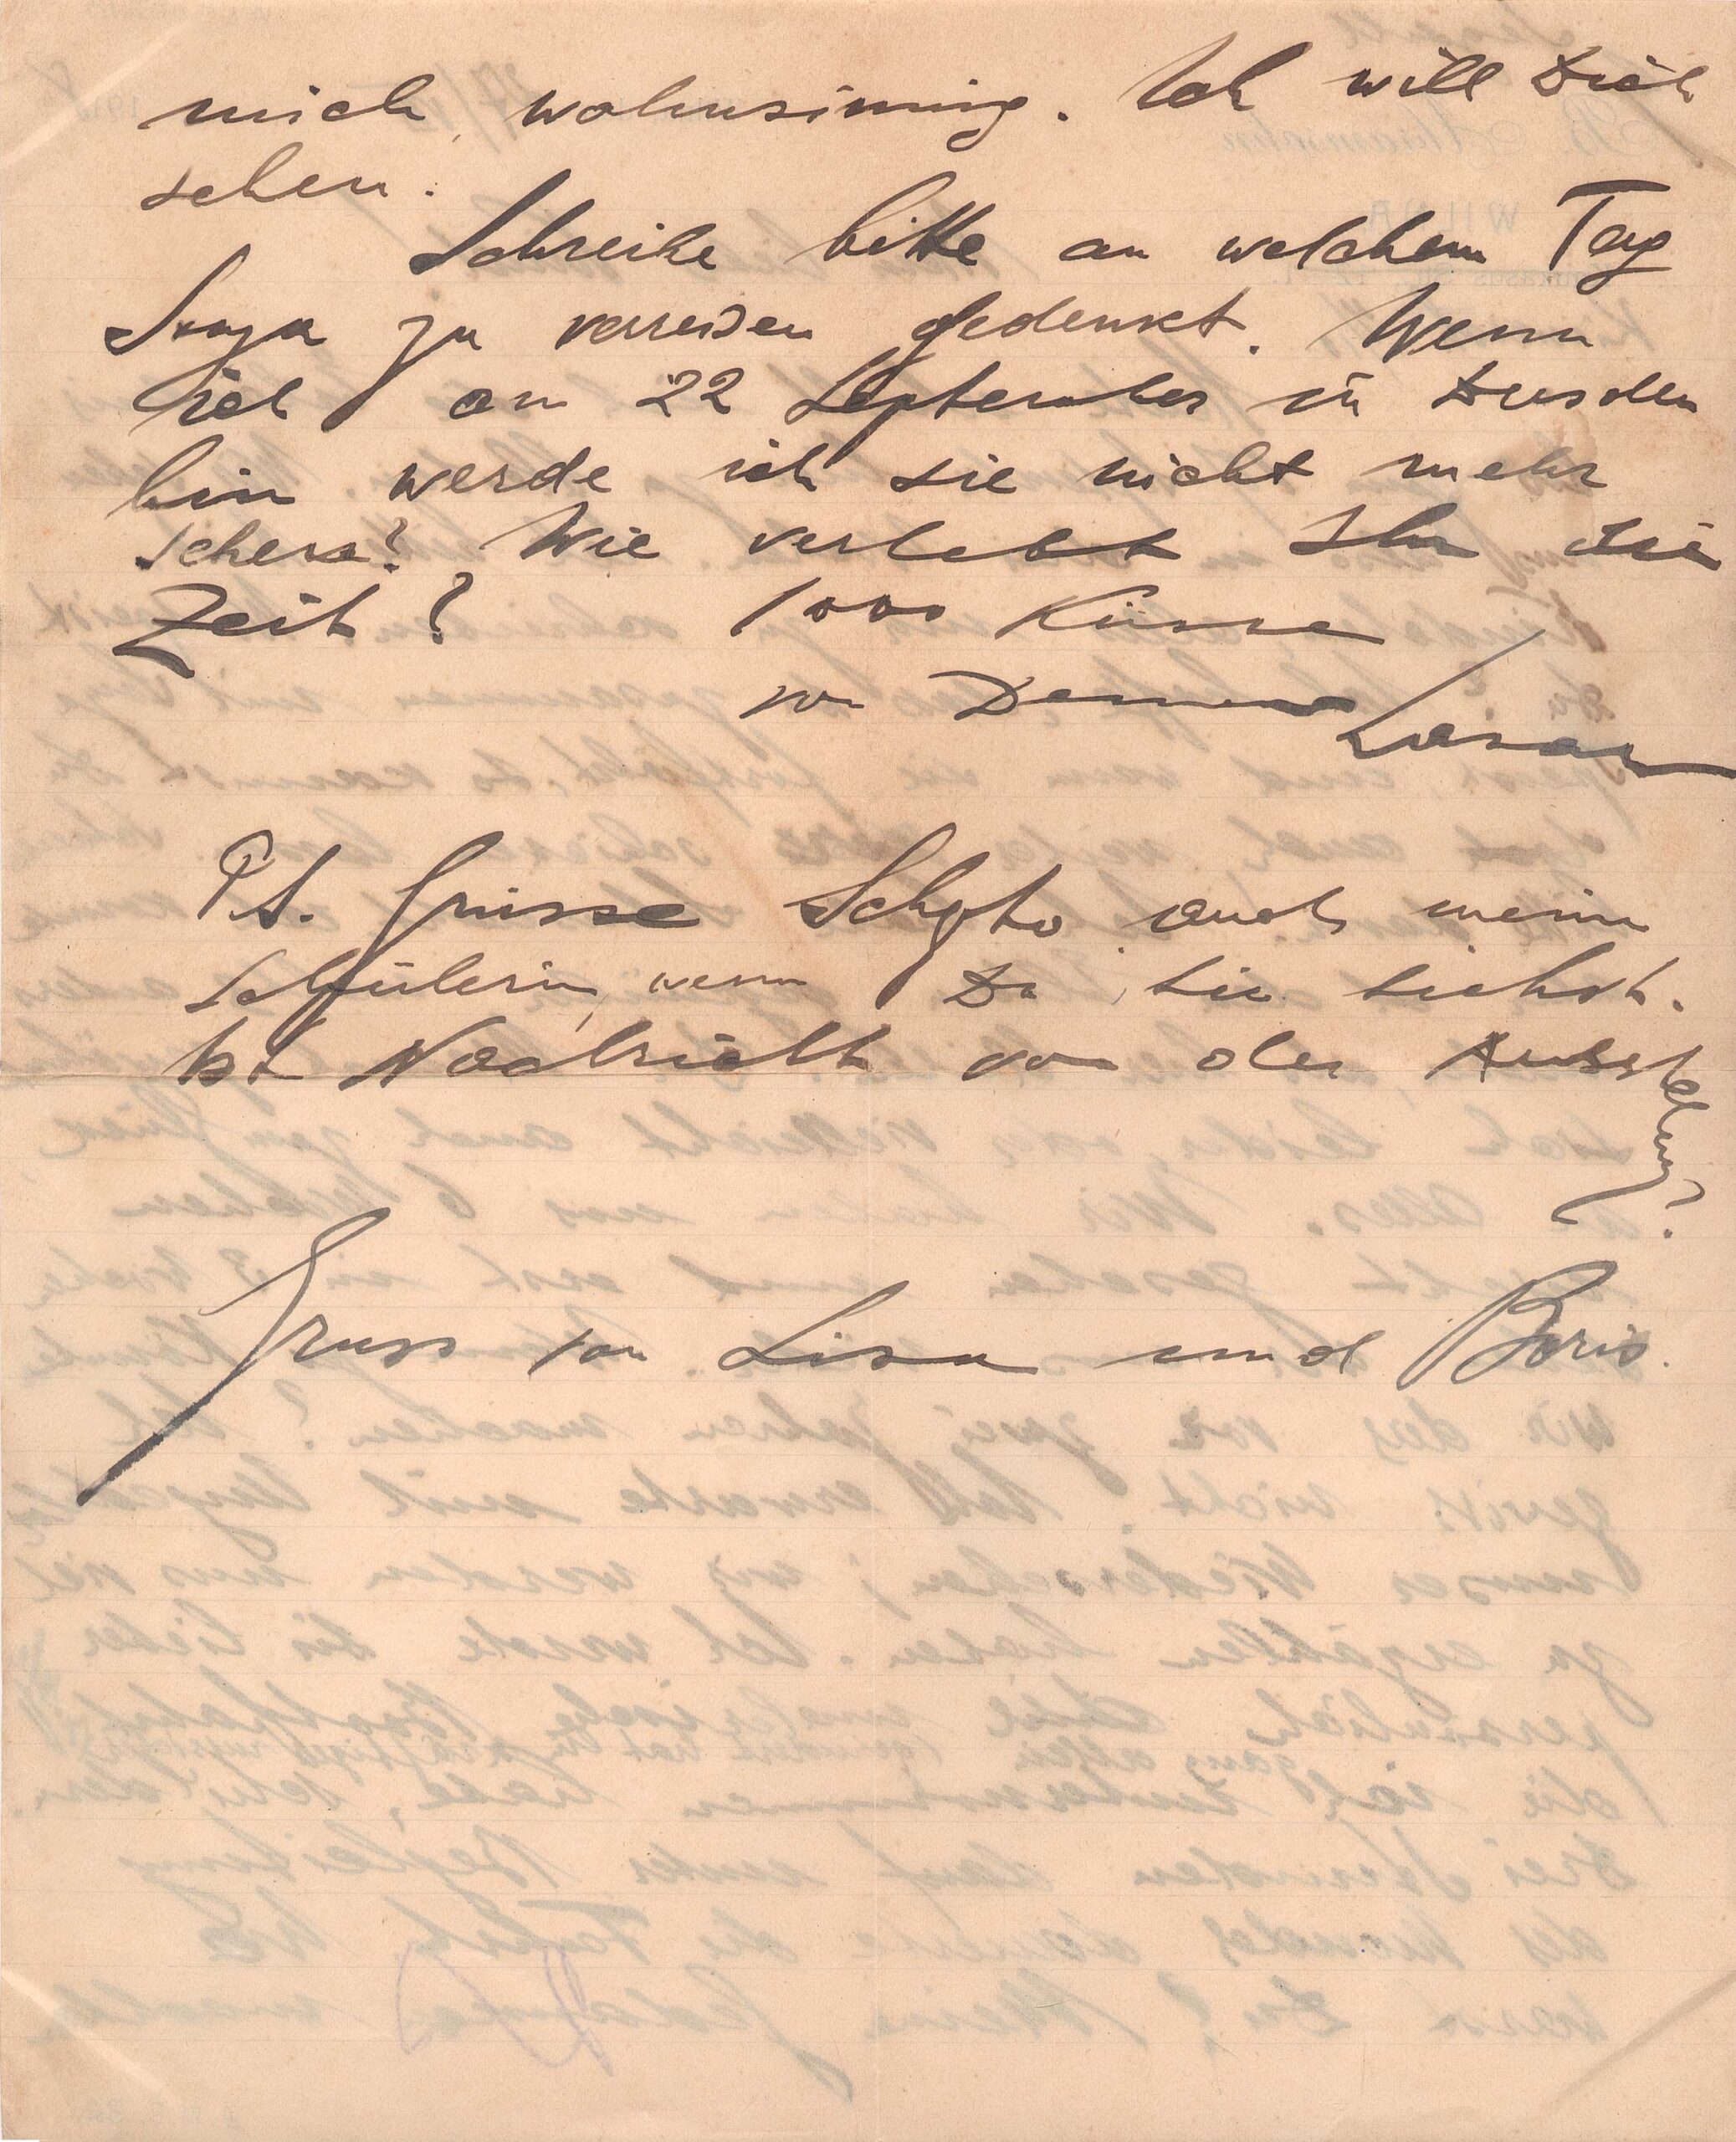 mich wahnsinnig. Ich will Dich
sehen.
Schreibe bitte an welchem Tag
Sonja zu verreisen gedenkt. Wenn
ich am 22 September in Dresden
bin werde ich sie nicht mehr
sehen? Wie verlebt Ihr die
Zeit? 1000 Küsse
von Deinem Lasar
P.S. Grüsse auch meine
Schülerin, wenn Du sie siehst.
Ist Nachricht von der Ausstellung?
Gruss von Lisa und Boris.